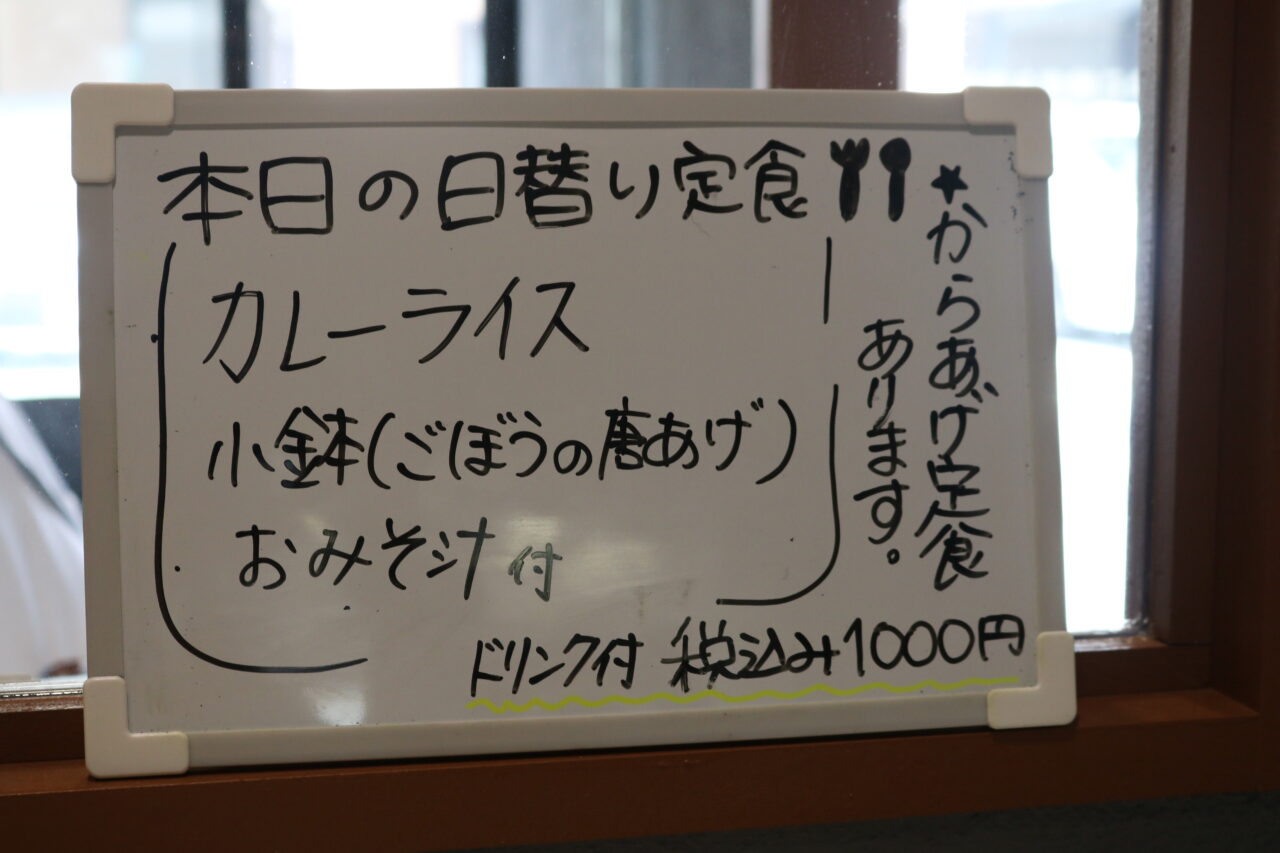 本日の日替り定食
カレーライス
小鉢(ごぼうの唐あげ)
おみそ汁付
ドリンク付 税込み1000円
★からあげ定食
あります。